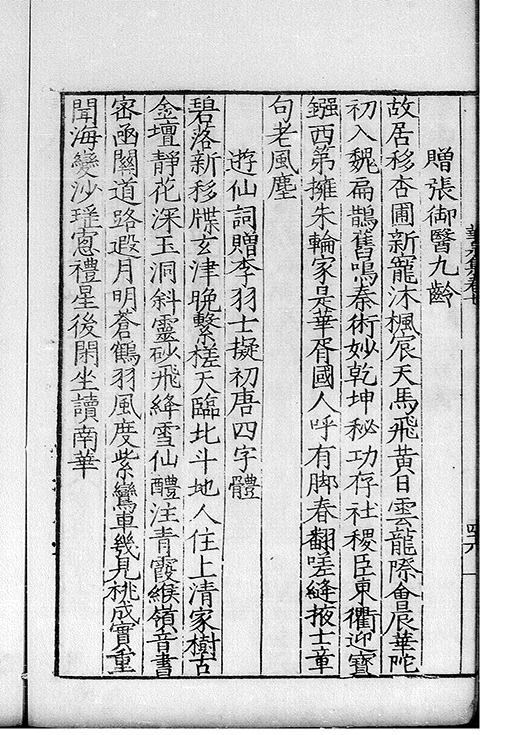 贈張御醫九齡
故居移杏圃新寵沐楓宸天馬飛黃日雲龍際會晨華陀
初入魏扁鵲舊鳴秦術妙乾坤秘功存社稷臣東衢迎寶
鏹西第擁朱輪家是華胥國人呼有脚春翻嗟縫掖士章
句老風塵
遊仙詞贈李羽士擬初唐四字體
碧落新移牒玄津晚繫槎天臨北斗地人住上清家樹古
金壇靜花深玉洞斜靈砂飛絳雪仙醴注青霞緱嶺音書
密函關道路遐月明蒼鶴羽風度紫鸞車幾見桃成實重
聞海變沙瑤窓禮星後閑坐讀南華